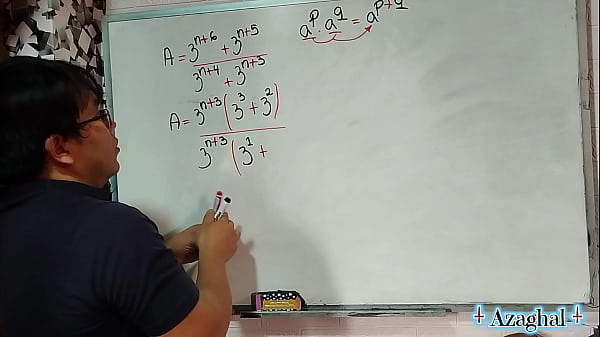 A = 3^{n+6} + 3^{n+5}
3^{n+4} + 3^{n+3}
a^p · a^q = a^{p+q}
A = 3^{n+3} (3^3 + 3^2)
3^{n+3} (3^1 +
Azaghal